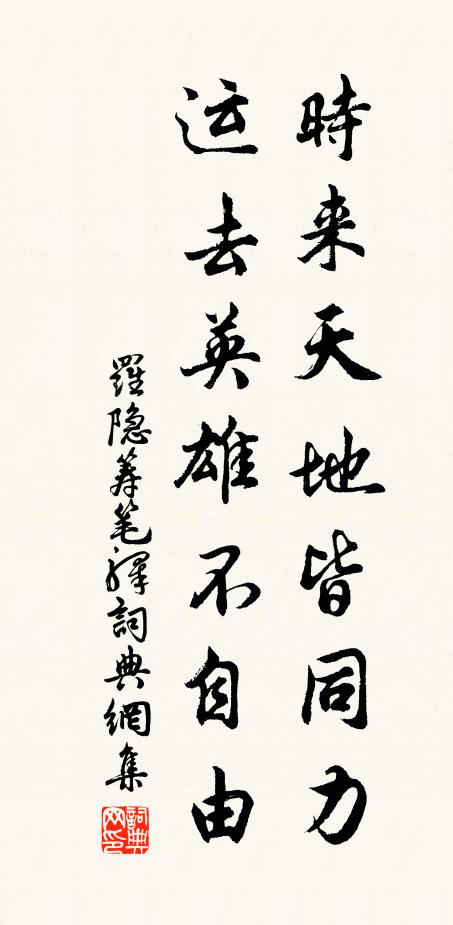 時来天地皆同力
运去英雄不自由
羅隐筹笔驛詞典網集
詞典
网印